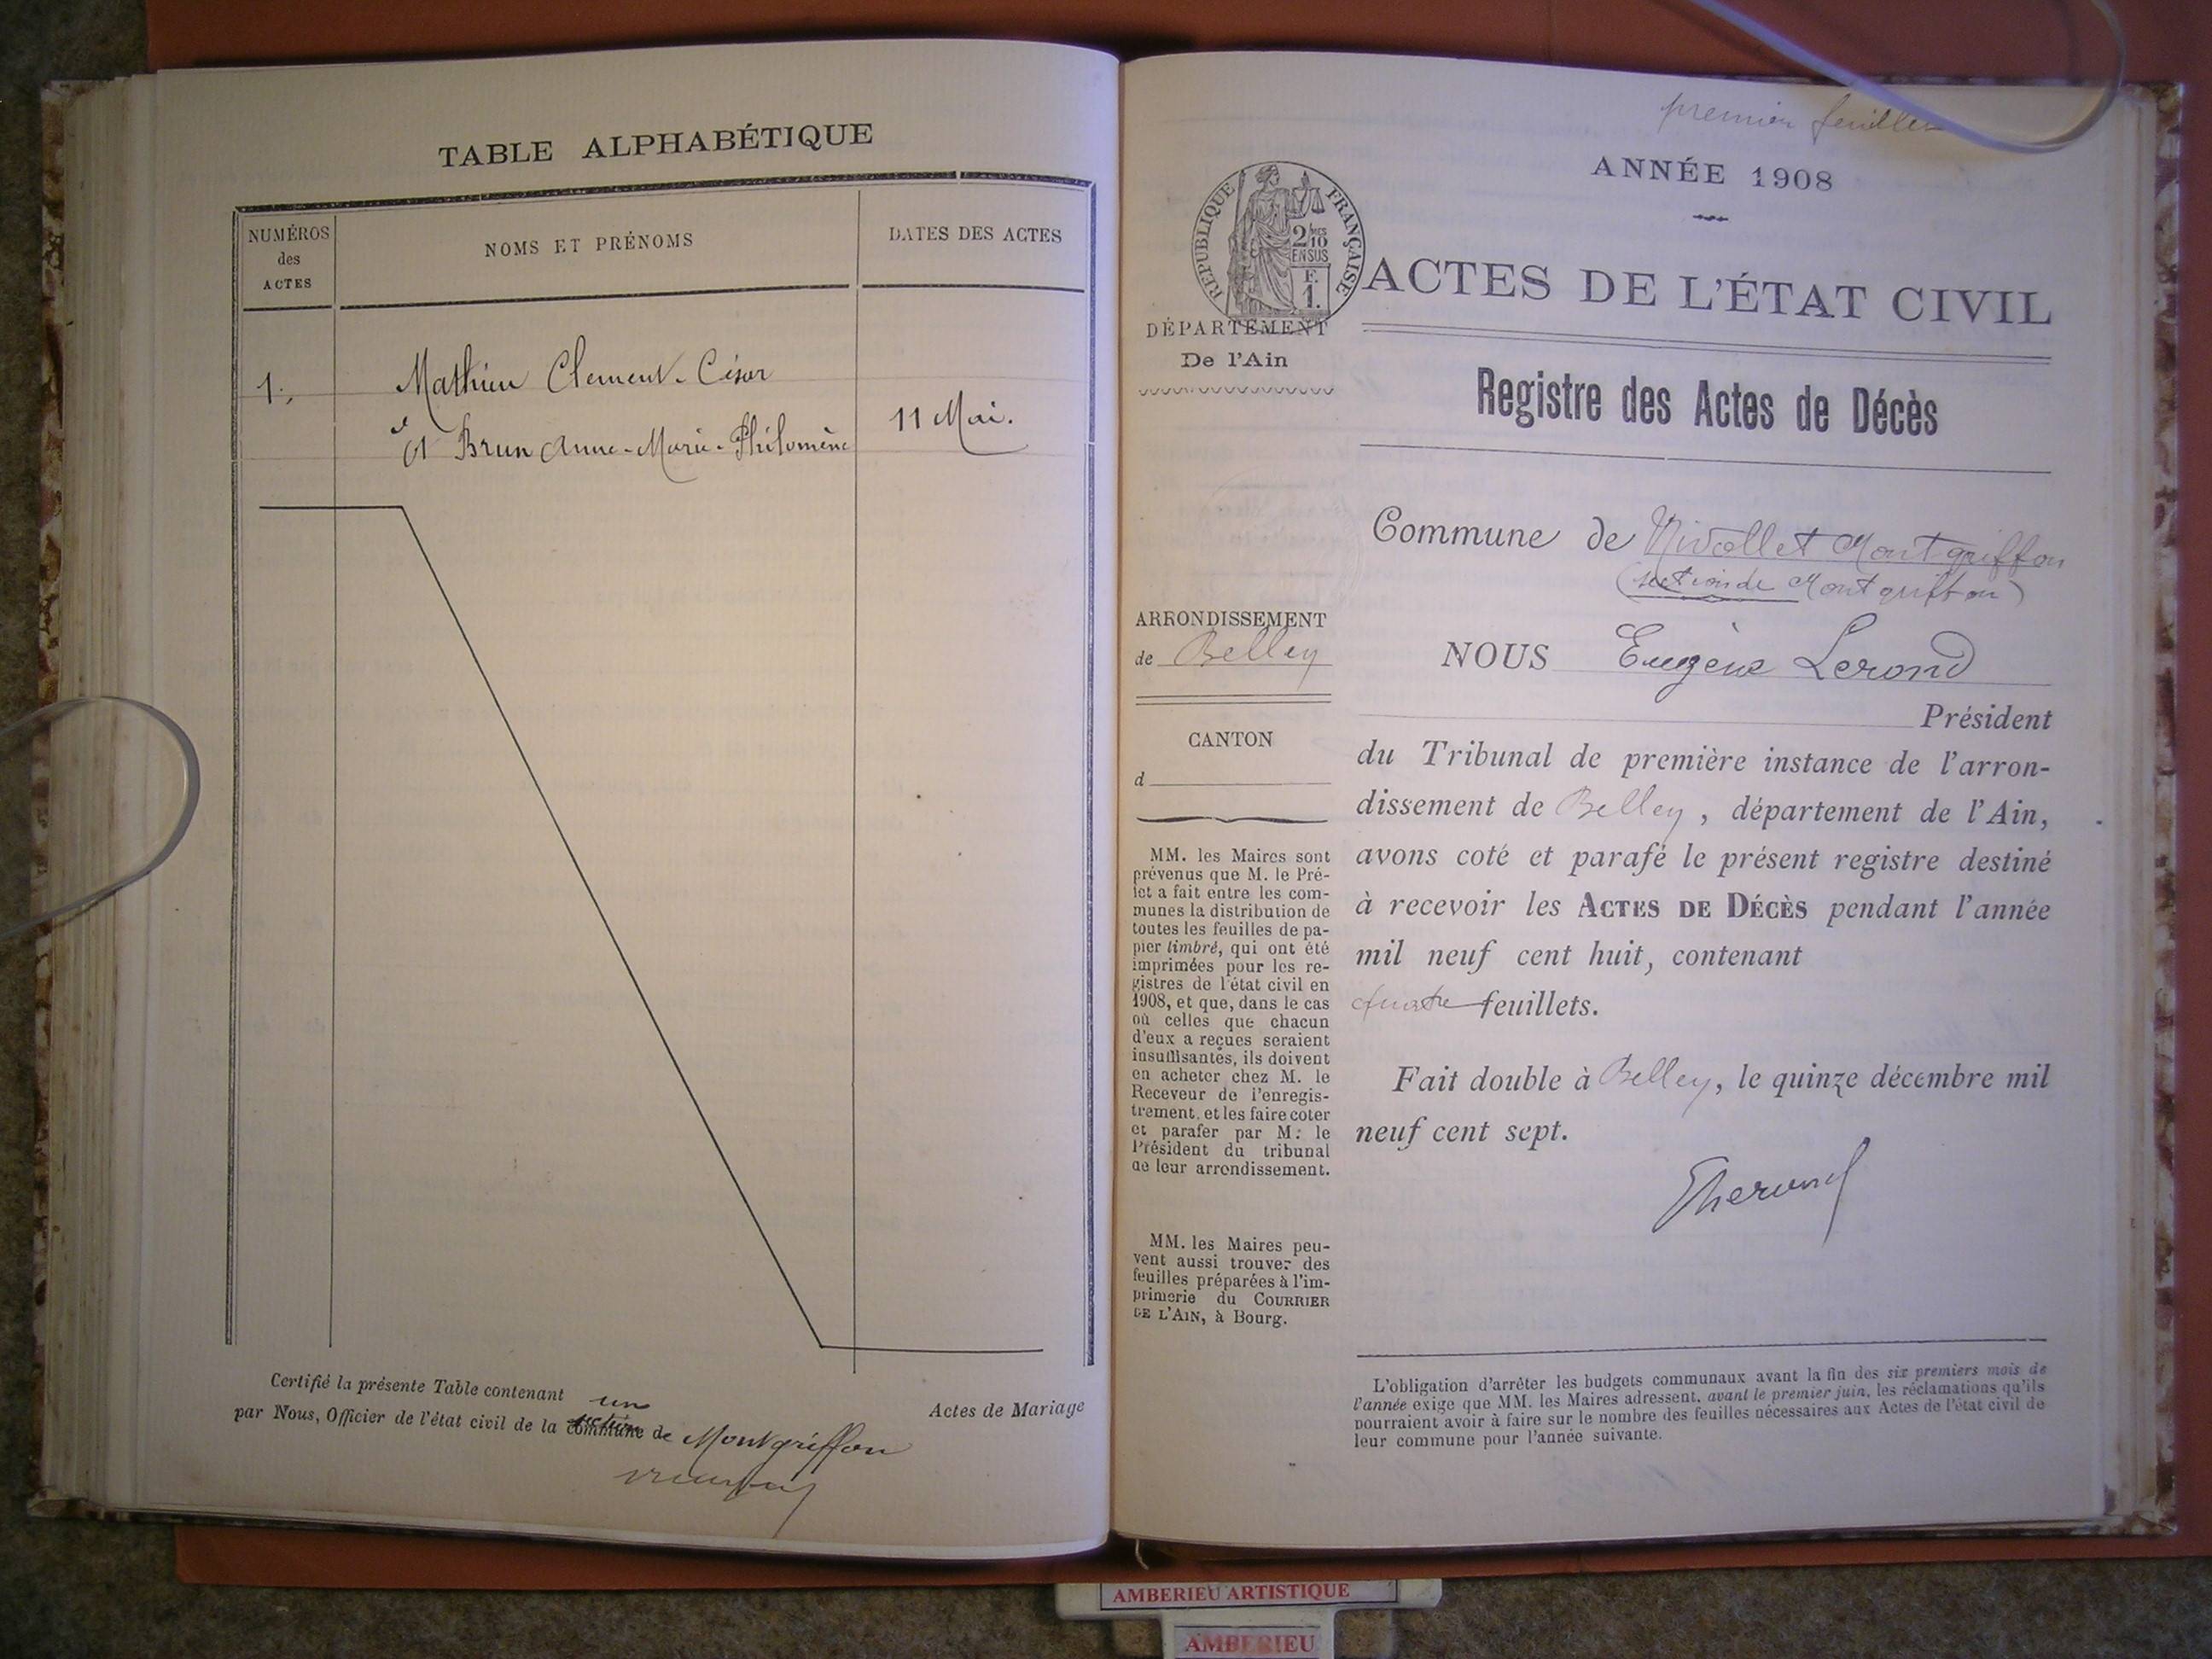 TABLE ALPHABÉTIQUE
NUMÉROS
des
ACTES
NOMS ET PRÉNOMS
DATES DES ACTES
1.
Mathieu Clement-César
et Brun Anne-Marie-Philomène
11 Mai.
Certifié la présente Table contenant un
Actes de Mariage
par Nous, Officier de l'état civil de la section de Montgriffon
premier feuillet
ANNÉE 1908
RÉPUBLIQUE FRANÇAISE
2/10
EN SUS
F.
1.
ACTES DE L'ÉTAT CIVIL
DÉPARTEMENT
De l'Ain
Registre des Actes de Décès
Commune de Nivollet Montgriffon
(section de Montgriffon)
ARRONDISSEMENT
de Belley
CANTON
d
MM. les Maires sont
prévenus que M. le Pré-
fet a fait entre les com-
munes la distribution de
toutes les feuilles de pa-
pier timbré, qui ont été
imprimées pour les re-
gistres de l'état civil en
1908, et que, dans le cas
où celles que chacun
d'eux a reçues seraient
insuffisantes, ils doivent
en acheter chez M. le
Receveur de l'enregis-
trement, et les faire coter
et parafer par M. le
Président du tribunal
de leur arrondissement.
MM. les Maires peu-
vent aussi trouver des
feuilles préparées à l'im-
primerie du COURRIER
DE L'AIN, à Bourg.
NOUS Eugène Lerond
Président
du Tribunal de première instance de l'arron-
dissement de Belley, département de l'Ain,
avons coté et parafé le présent registre destiné
à recevoir les ACTES DE DÉCÈS pendant l'année
mil neuf cent huit, contenant
quatre feuillets.
Fait double à Belley, le quinze décembre mil
neuf cent sept.
L'obligation d'arrêter les budgets communaux avant la fin des six premiers mois de
l'année exige que MM. les Maires adressent, avant le premier juin, les réclamations qu'ils
pourraient avoir à faire sur le nombre des feuilles nécessaires aux Actes de l'état civil de
leur commune pour l'année suivante.
AMBERIEU ARTISTIQUE
AMBERIEU